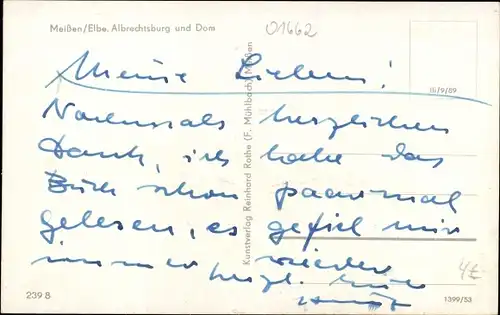 Meißen/Elbe. Albrechtsburg und Dom
01662
III/9/89
Meine Lieben!
Nochmals herzlichen
Dank, ich habe das
Buch schon paarmal
gelesen, es gefiel mir
immer wieder
herzl. Eure
Kunstverlag Reinhard Rothe (F. Mühlbach) Meißen
4€
239 B
1399/53